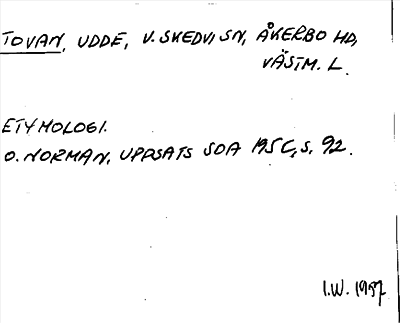 TOVAN, UDDE, V. SKEDVI SN, ÅKERBO HD,
VÄSTM. L.
ETYMOLOGI.
O. NORMAN, UPPSATS SOA 195C, S. 92.
I.W. 1957